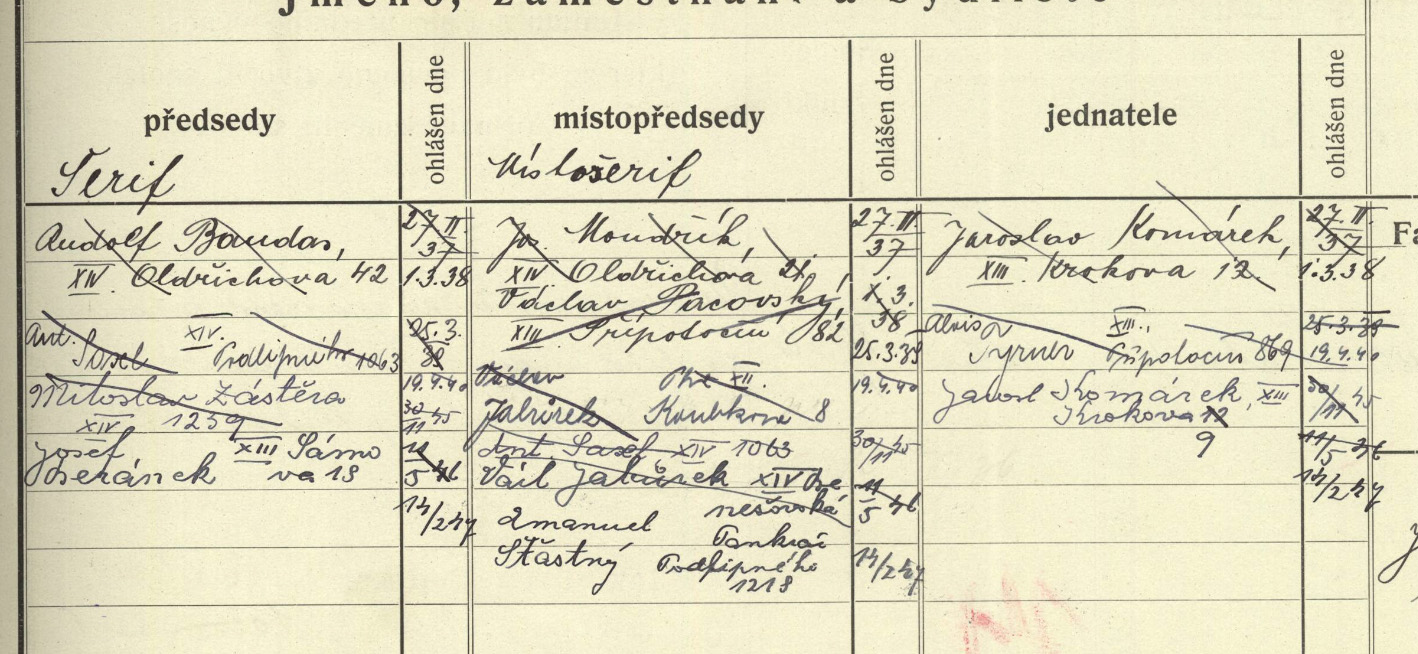 Jméno, zaměstnání a bydliště
předsedy
Šerif
Rudolf Baudas,
XIV. Oldřichova 42
Ant. XIV.
Sasel Podlipného 1063
Miloslav Zástěra
XIV 1239
Josef XIII Sámo
Beránek va 18
ohlášen dne
27.II.
37
1.3.38
25.3.
39
19.4.40
30/11 45
11/5 46
14/2 47
místopředsedy
Místošerif
Jos. Moudrík,
XIV Oldřichova 21,
Václav Pacovský,
XIII Přípotoční 82
Václav XII.
Jabůrek Koubkova 8
Ant. Sasel, XIV 1063
Václ Jabůrek XIV Be
nešovská
Emanuel Pankrác
Šťastný Podlipného
1218
ohlášen dne
27.II.
37
1.3.
38
25.3.39
19.4.40
30/11 45
11/5 46
14/2 47
jednatele
Jaroslav Komárek,
XIII. Krokova 12.
Alois XIII.,
Přípotoční 869
Jarosl Komárek, XIII
Krokova 12
9
ohlášen dne
27.II.
37
1.3.38
25.3.39
19.4.40
30/11 45
11/5 46
14/2 47
Fa